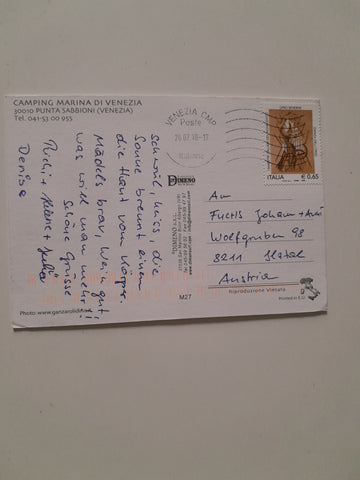 CAMPING MARINA DI VENEZIA
30010 PUNTA SABBIONI (VENEZIA)
Tel. 041-53 00 955
schwül, heiss, die
Sonne brennt einem
die Haut vom Körper.
Mädels brav, Wein gut,
was will man mehr!!
Schöne Grüsse
Denise
VENEZIA CMP
Poste
26.07.10-17
ITALIA
€ 0,65
DIMENO
M27
An
Fuchs Johann
Wolfgruben 98
8211
Austria
Riproduzione Vietata
Printed in E.U.
Photo: www.ganzaroli